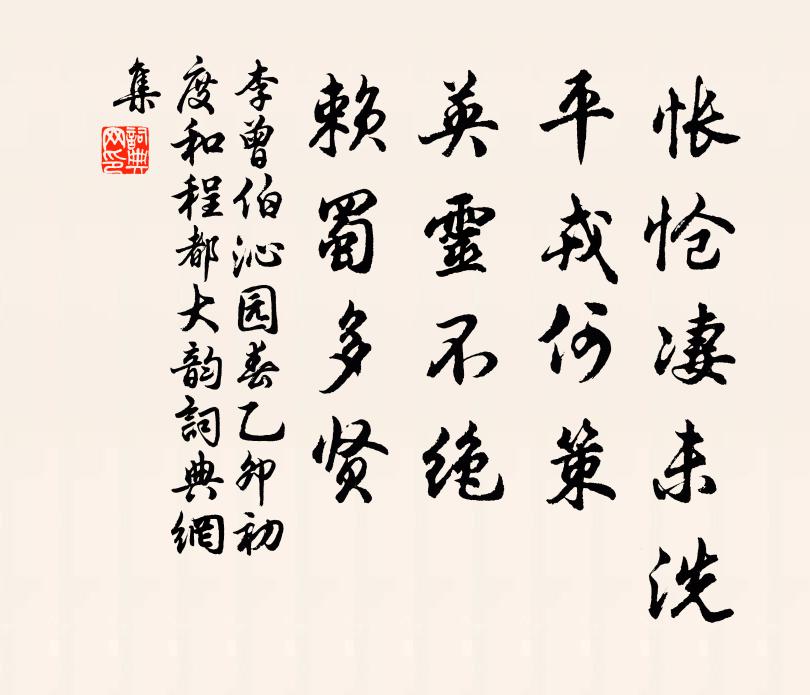 怅怆凄未洗
平戎何策
英靈不绝
賴蜀多贤
李曾伯沁园春乙卯初
度和程都大韵詞典網
集
詞典网印